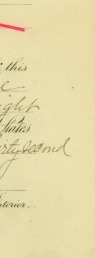 this
ight
States
irty second
nterior.